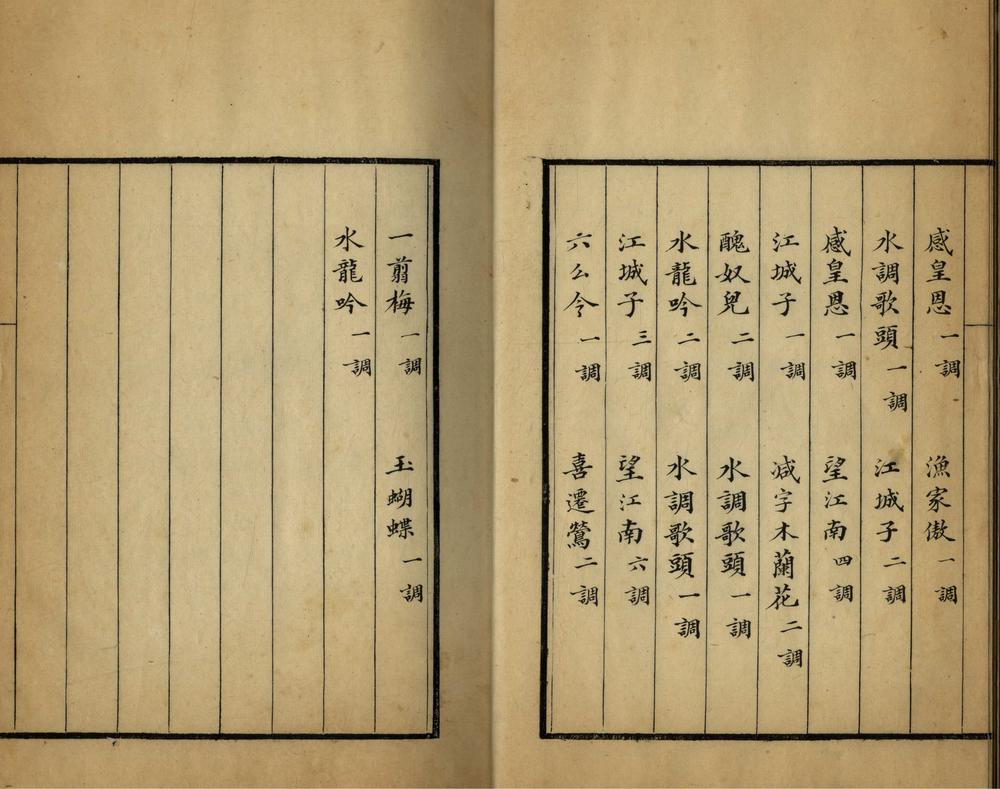 感皇恩一調 漁家傲一調
水調歌頭一調 江城子二調
感皇恩一調 望江南四調
江城子一調 减字木蘭花二調
醜奴兒二調 水調歌頭一調
水龍吟二調 水調歌頭一調
江城子三調 望江南六調
六么令一調 喜遷鶯二調
一翦梅一調 玉蝴蝶一調
水龍吟一調